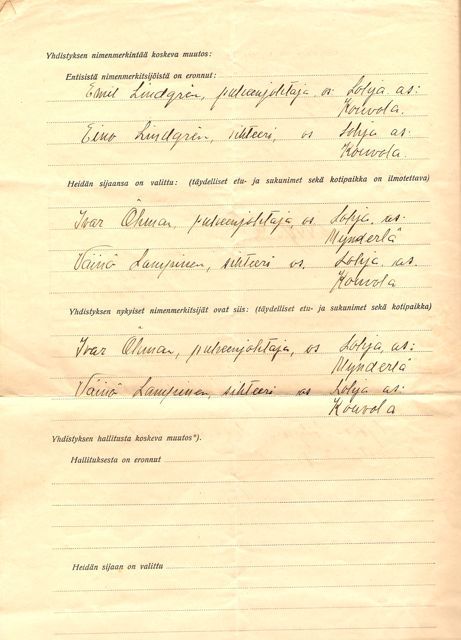 Yhdistyksen nimenmerkintää koskeva muutos:
Entisistä nimenmerkitsijöistä on eronnut:
Emil Lindgrén, puheenjohtaja, os Lohja as:
Kouvola.
Eino Lindgrén, sihteeri, os Lohja as:
Kouvola.
Heidän sijaansa on valittu: (täydelliset etu- ja sukunimet sekä kotipaikka on ilmotettava)
Ivar Öhman, puheenjohtaja, os Lohja. as:
Mynderlä
Väinö Lampinen, sihteeri os. Lohja. as.
Kouvola
Yhdistyksen nykyiset nimenmerkitsijät ovat siis: (täydelliset etu- ja sukunimet sekä kotipaikka)
Ivar Öhman, puheenjohtaja, os Lohja, as:
Mynderlä
Väinö Lampinen, sihteeri os Lohja as:
Kouvola
Yhdistyksen hallitusta koskeva muutos*).
Hallituksesta on eronnut
Heidän sijaan on valittu